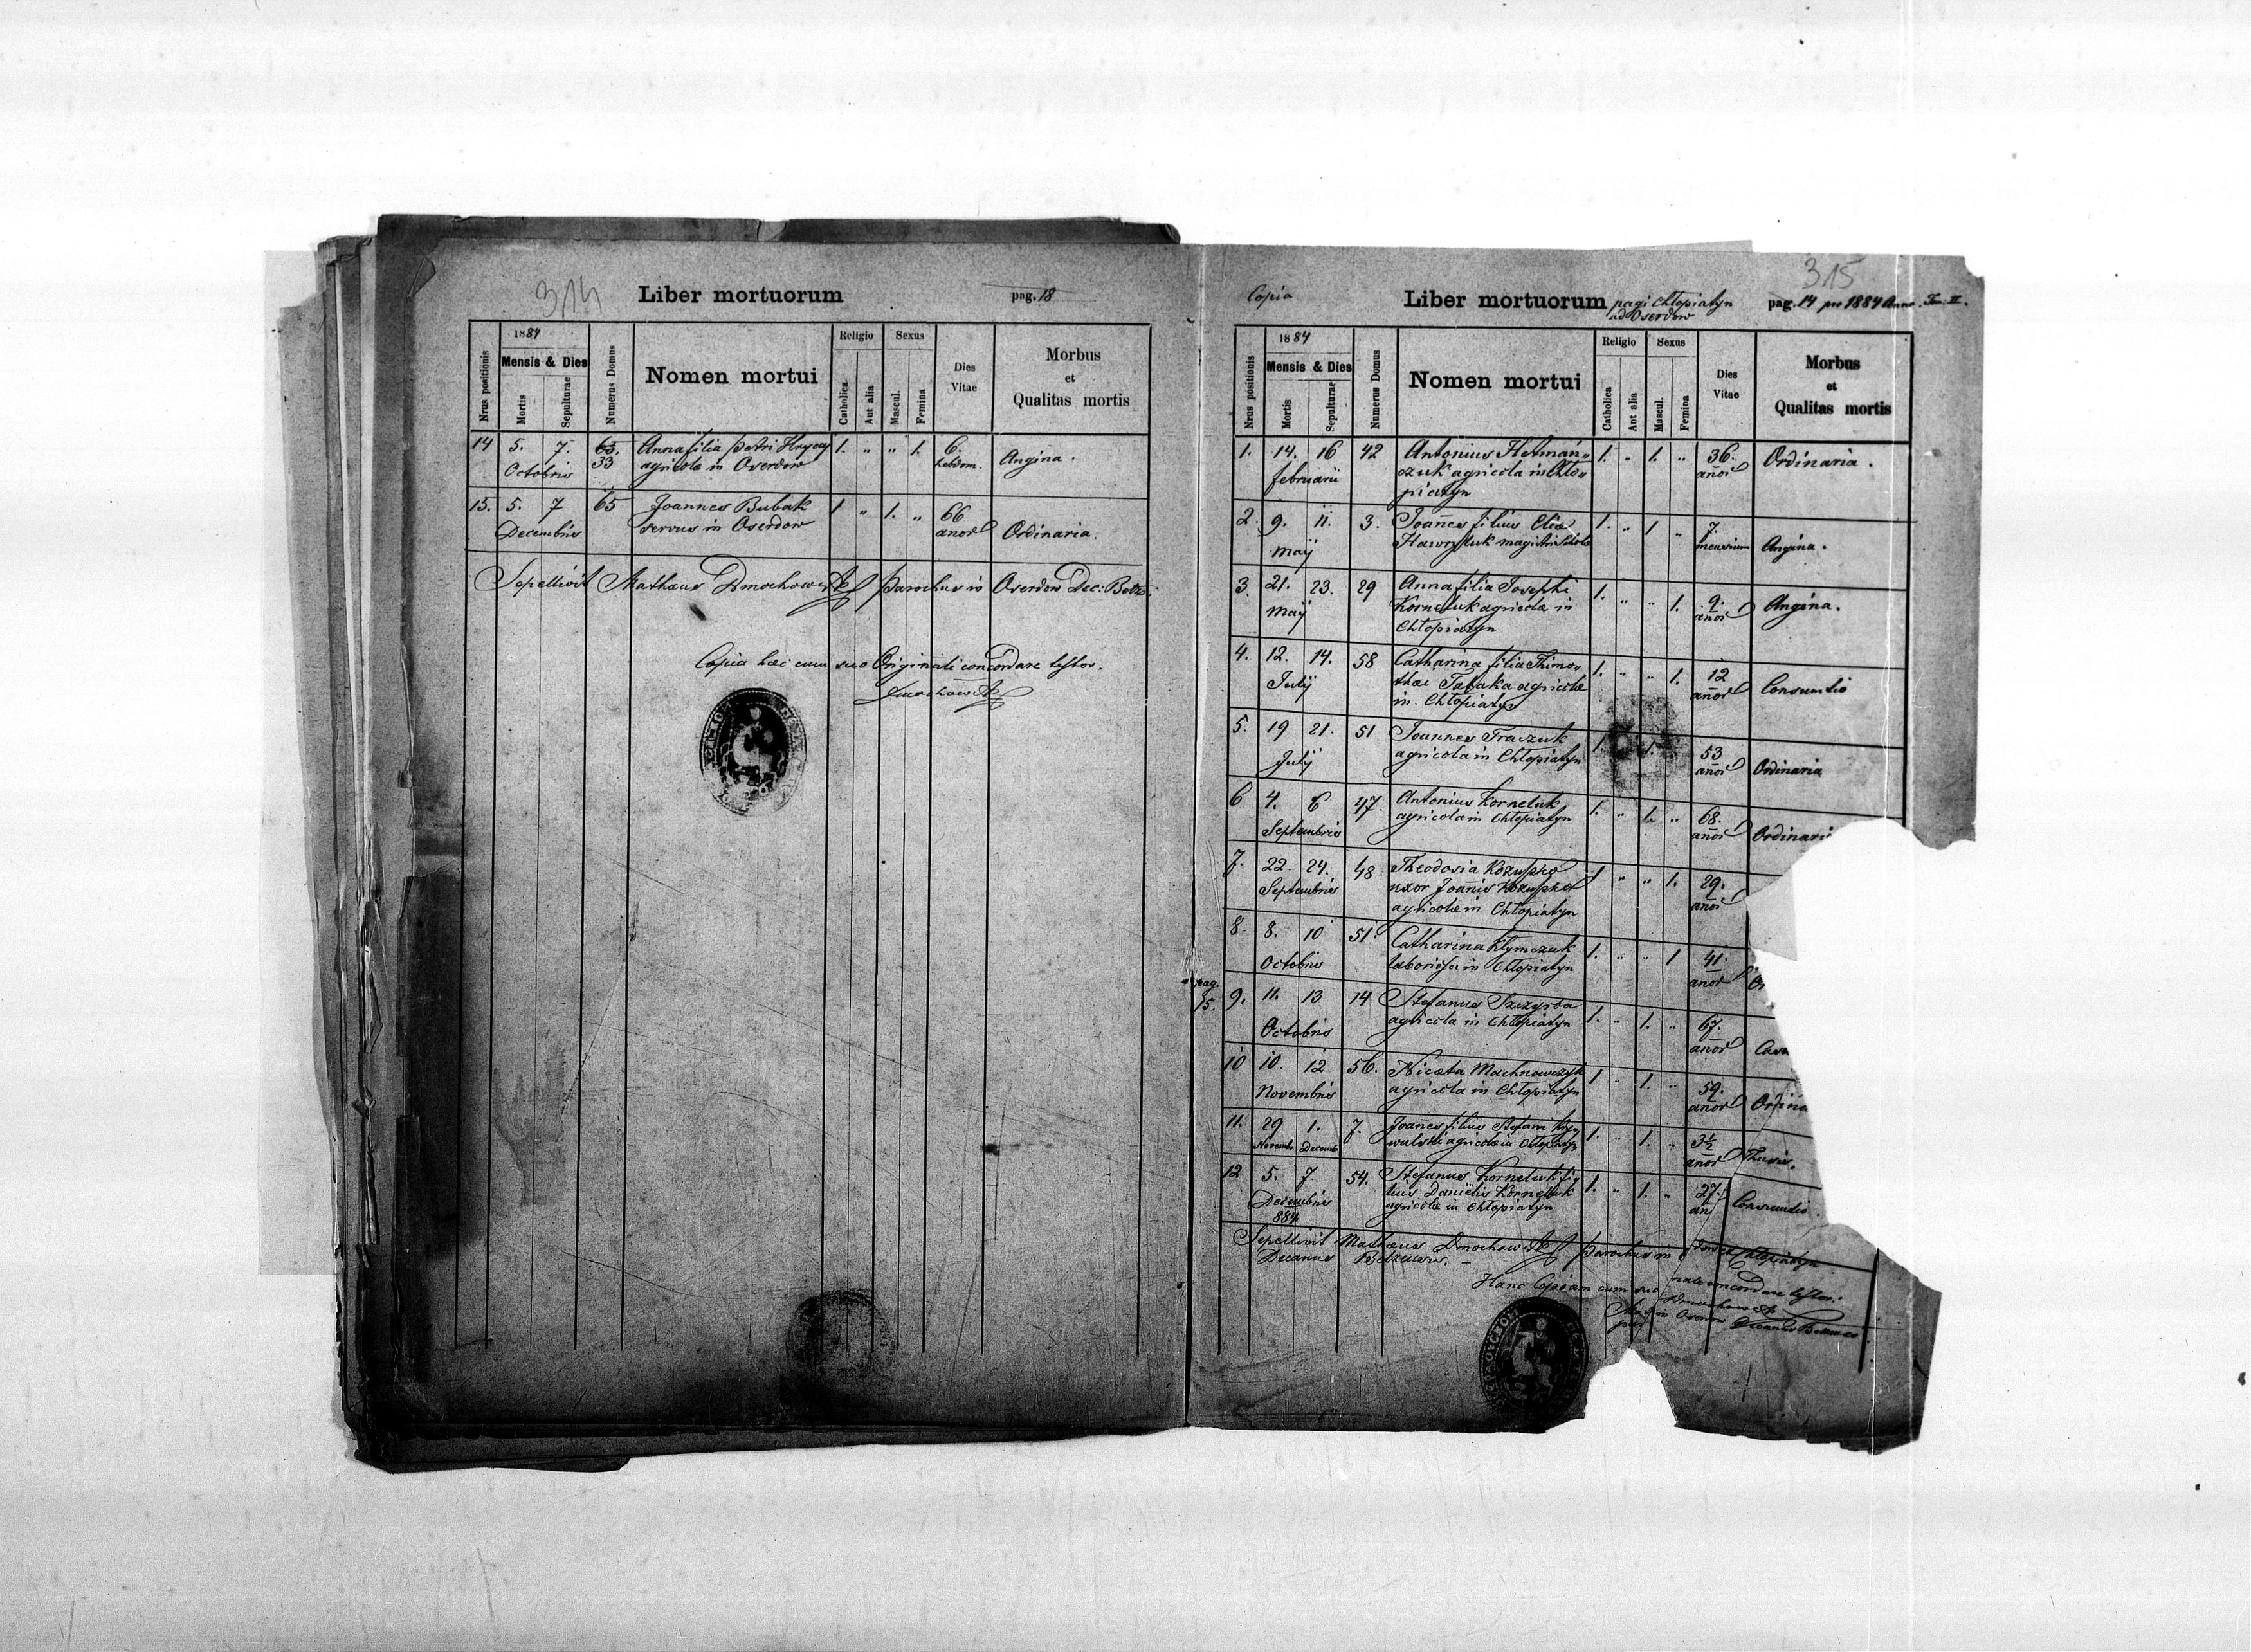 314
Liber mortuorum
pag. 18
1884
Religio
Sexus
Nrus positionis
Mensis & Dies
Mortis
Sepulturae
Numerus Domus
Nomen mortui
Catholica
Aut alia
Mascul.
Femina
Dies
Vitae
Morbus
et
Qualitas mortis
14 5. 7. 65. Anna filia Petri 1. " " 1. 6. Angina.
Octobris 33 agricolæ in Oserdow hebdom.
15. 5. 7 65 Joannes Bubak 1 " 1. " 66 Ordinaria.
Decembris servus in Oserdow anor
Sepellivit Mathæus Dmochowski Parochus in Oserdow Dec:
Copia hæc cum suo Originali concordare testor.
Dmochowski
315
Copia
Liber mortuorum pagi Chłopiatyn
ad Oserdow
pag. 14 pro 1884 Anno. Tom. II.
1884
Religio
Sexus
Nrus positionis
Mensis & Dies
Mortis
Sepulturae
Numerus Domus
Nomen mortui
Catholica
Aut alia
Mascul.
Femina
Dies
Vitae
Morbus
et
Qualitas mortis
1. 14. 16 42 Antonius Hetmań„ 1. " 1. " 36. Ordinaria.
februarii czuk agricola in Chło„ añor
piatyn
2. 9. 11. 3. Joañes filius Eliæ 1. " 1 " 7. Angina.
maÿ magistri mensium
3. 21. 23. 29 Anna filia Josephi 1. " " 1. 9. Angina.
maÿ Korneluk agricolæ in añor
Chłopiatyn
4. 12. 14. 58 Catharina filia Thimo„ 1. " " 1. 12 Consumtio
Julÿ thæi Tabaka agricolæ añor
in Chłopiatyn
5. 19 21. 51 Joannes Traczuk 1. 1. 53 Ordinaria
Julÿ agricola in Chłopiatyn añor
6 4. 6 47 Antonius Korneluk 1. " 1. " 68. Ordinari
Septembris agricola in Chłopiatyn añor
7. 22. 24. 48 Theodosia Kozupko 1 " " 1. 29.
Septembris uxor Joañis Kozupko añor
agricolæ in Chłopiatyn
8. 8. 10 51. Catharina Klymczuk 1. " " 1 41.
Octobris laboriosa in Chłopiatyn anor
pag.
15.
9. 11. 13 14 Stefanus Szczyrba 1. " 1. " 67.
Octobris agricola in Chłopiatyn añor
10 10. 12 56. Niceta Machnowczyk 1 " 1. " 59. Ordina
Novembris agricola in Chłopiatyn añor
11. 29 1. 7. Joañes filius Stefani 1. " 1. " 3½
Novemb. Decemb. agricolæ in Chłopiatyn añor
12 5. 7 54. Stefanus Korneluk fi„ 1. " 1. " 27. Consumtio.
Decembris lius Danielis Korneluk an
884 agricolæ in Chłopiatyn
Sepellivit Mathæus Dmochowski Parochus in Chłopiatyn
Decanus
Hanc Copiam cum suo concordare testor.
Dmochowski
Decanus